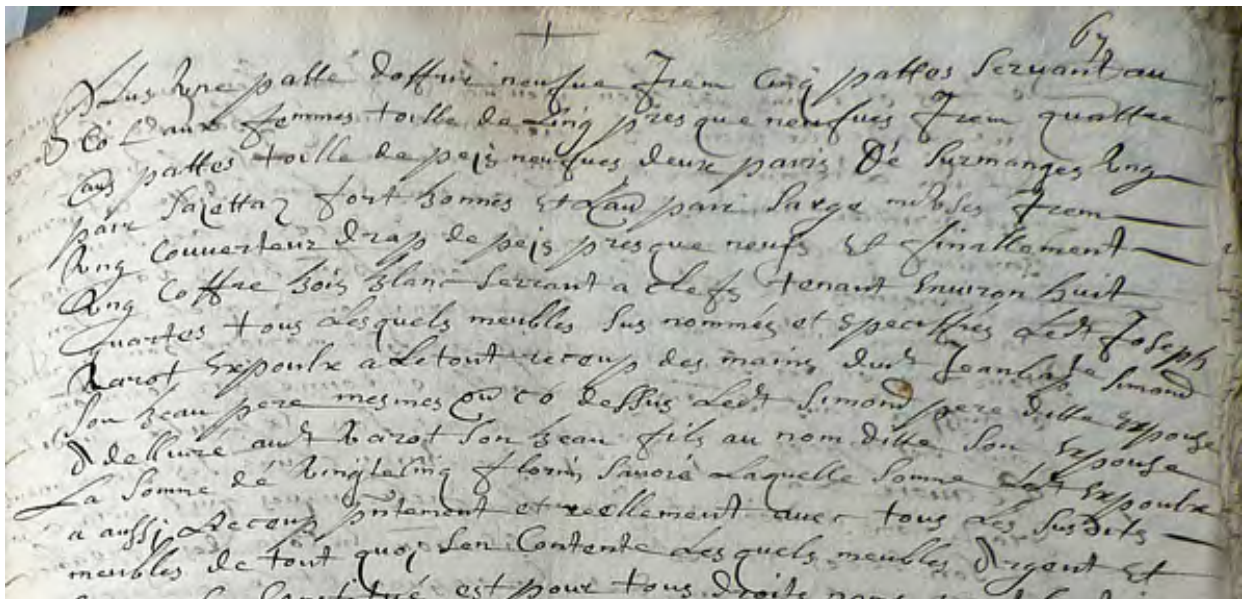 67
Plus Une patte doffrir neufue Jtem Cinq pattes Seruant au
Col aux femmes toille de Ling presque neufues Jtem quattre
aus pattes toille de peis neufues deux pairs De Surmanges Ung
pair fort bonnes et Lau pair Sarge Jtem
Ung Couuerteur drap de peis presque neufs Et finallement
Ung Coffre bois blanc Serrant a clefs tenant Enuiron huit
quartes tous Lesquels meubles Sus nommés et Speciffiés Ledt Joseph
Expoulx a Le tout receup des mains dudt Simond
Son beau pere mesmes que co dessus Ledt Simond pere dille Expouse
delliure audt Son beau fils au nom dille Son Expouse
La Somme de Vingtcinq florin Sauoie Laquelle Somme Ledt Expoulx
a aussi Receup pntement et reellement auec tous Les Susdits
meubles de tout quoi Sen Contente Lesquels meubles Argent Et
est pour tous droits